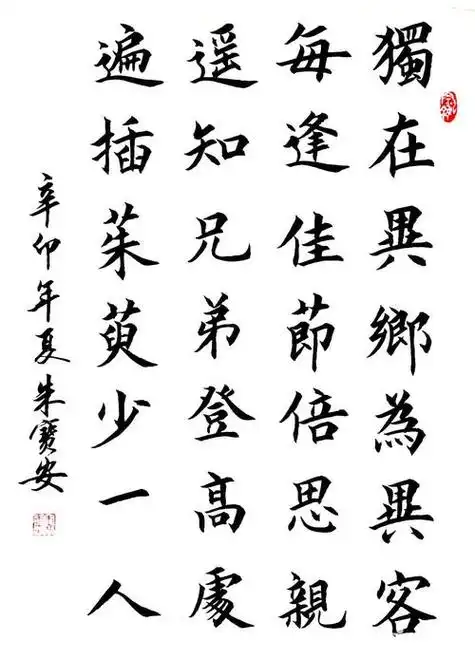 獨在異鄉為異客
每逢佳節倍思親
遥知兄弟登高處
遍插茱萸少一人
辛卯年夏朱寶安